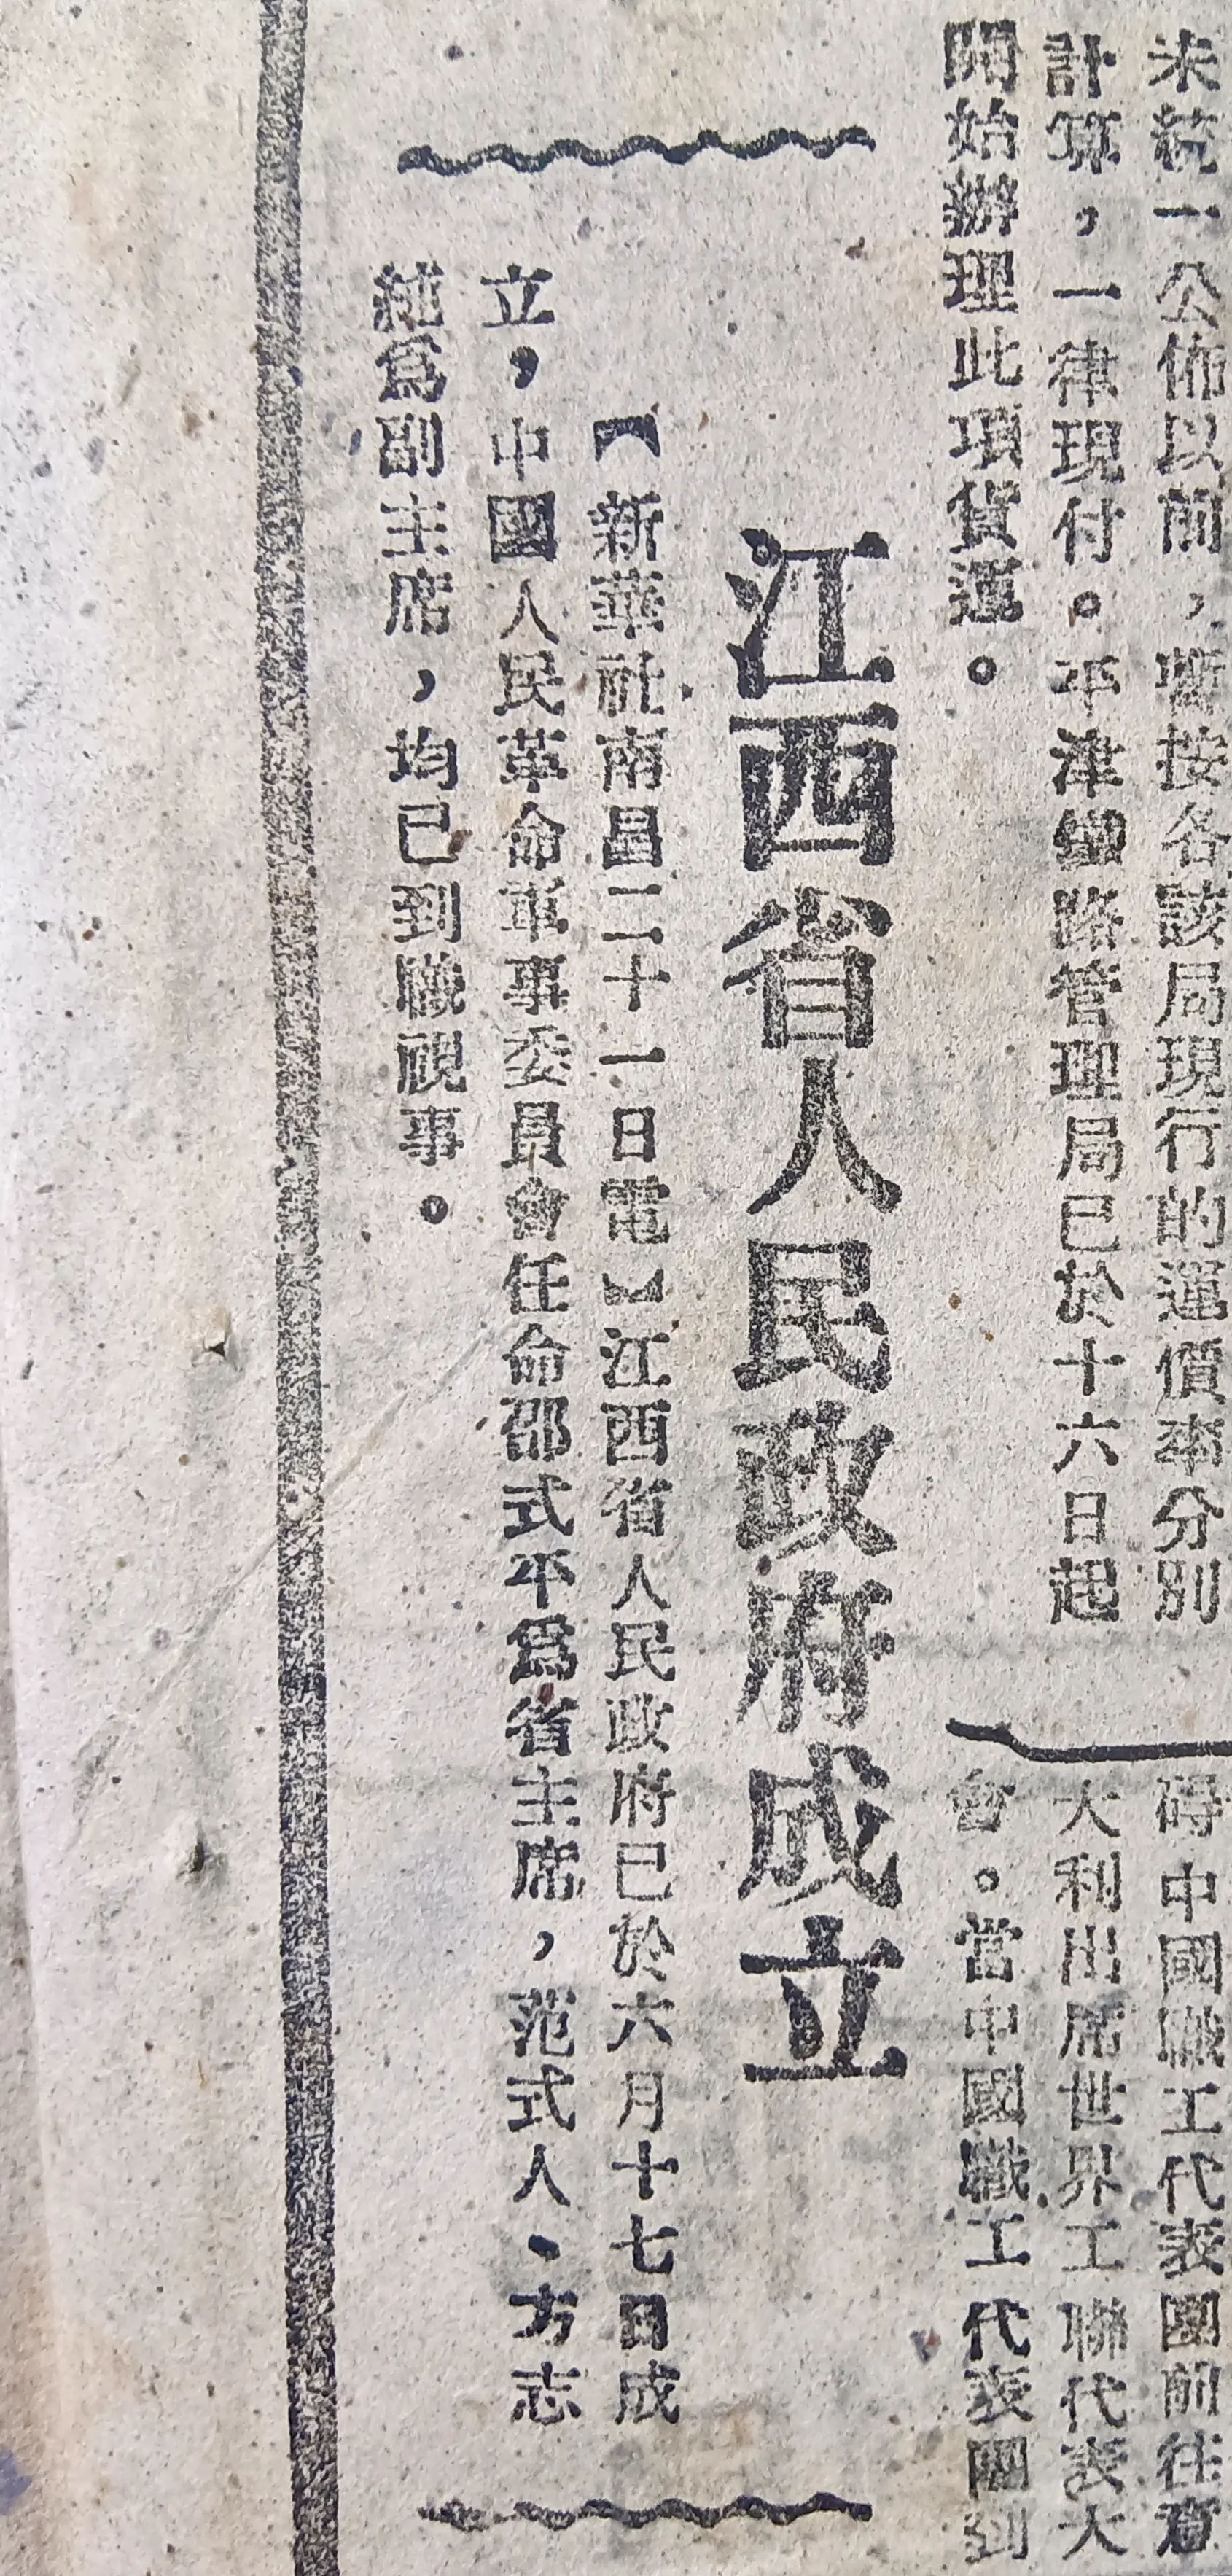 未統一公佈以前，暫按各該局現行的運價率分別
計算，一律現付。平津鐵路管理局已於十六日起
開始辦理此項貨運。
碍中國職工代表團前往意
大利出席世界工聯代表大
會。當中國職工代表團到
江西省人民政府成立
【新華社南昌二十一日電】江西省人民政府已於六月十七日成
立，中國人民革命軍事委員會任命邵式平為省主席，范式人、方志
純為副主席，均已到職視事。